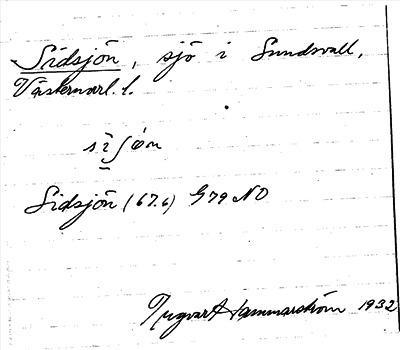 Sidsjön, sjö i Sundsvall,
Västernorrl. l.
Sidsjön (67.6) G79 NO
Hammarström 1932